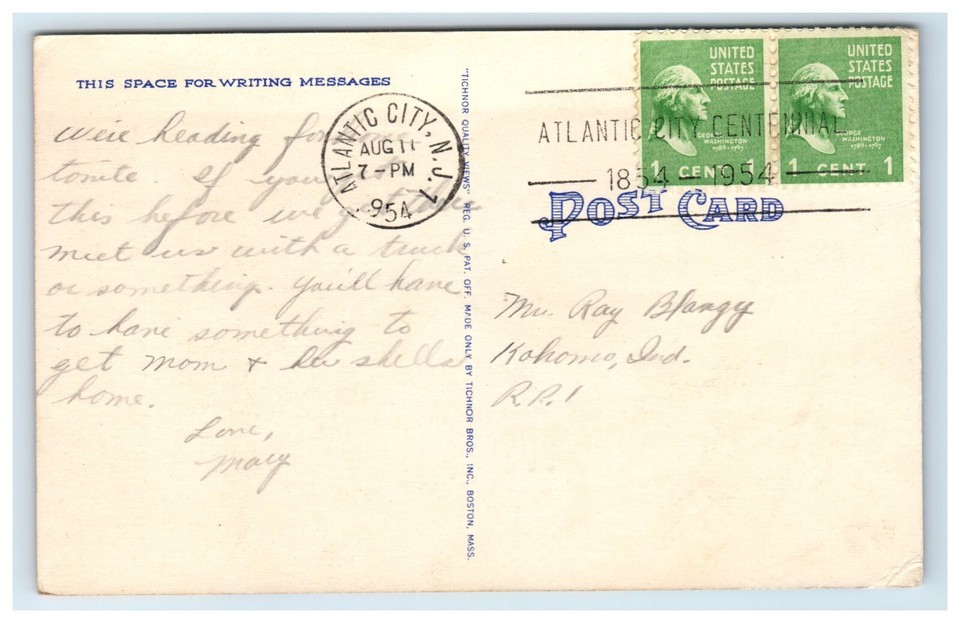 THIS SPACE FOR WRITING MESSAGES
We're heading for
tonite. If you
this before we
meet us with a truck
or something. You'll have
to have something to
get Mom & her shells
home.
Love,
Mary
ATLANTIC CITY, N.J. 1
AUG 11
7-PM
1954
"TICHNOR QUALITY VIEWS" REG. U. S. PAT. OFF. MADE ONLY BY TICHNOR BROS., INC., BOSTON, MASS.
UNITED
STATES
POSTAGE
GEORGE
WASHINGTON
1789-1797
1 CENT
UNITED
STATES
POSTAGE
GEORGE
WASHINGTON
1789-1797
1 CENT 1
ATLANTIC CITY CENTENNIAL
1854 1954
POST CARD
Mr. Ray Blangy
Kokomo, Ind.
R.R. 1